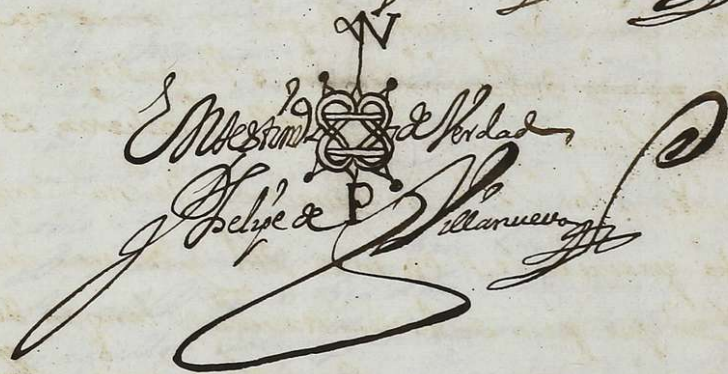 N
En testimº de Verdad
P
Felipe de Villanueva